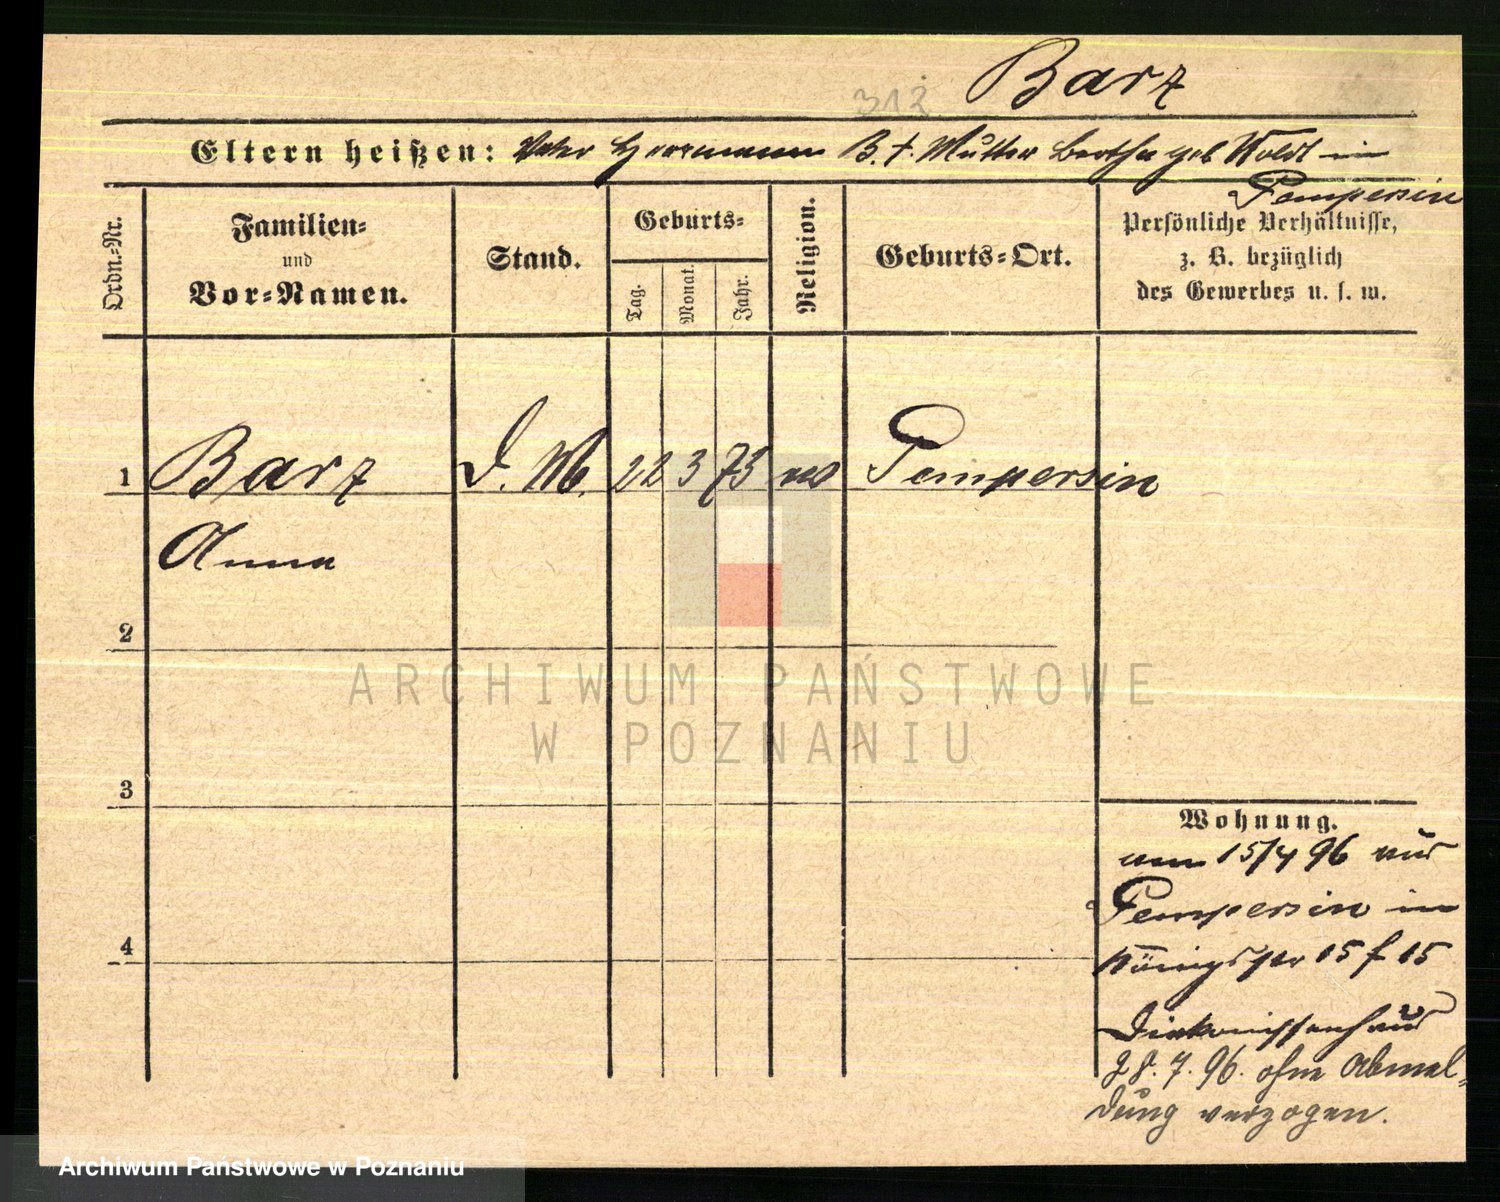 Barz
312
Eltern heißen: Vater Herrmann B. †. Mutter Bertha geb Woldt in
Pempersin
Ordn.-Nr.
Familien-
und
Vor-Namen.
Stand.
Geburts-
Tag.
Monat.
Jahr.
Religion.
Geburts-Ort.
Persönliche Verhältnisse,
z. B. bezüglich
des Gewerbes u. s. w.
1 Barz D. M. 22 3 75 ev Pempersin
Anna
2
3
4
Wohnung.
am 15/4 96 aus
Pempersin in
Königstr 15 f 15
Diakonissenhaus
28. 7. 96. ohne Abmel-
dung verzogen.
ARCHIWUM PAŃSTWOWE
W POZNANIU
Archiwum Państwowe w Poznaniu